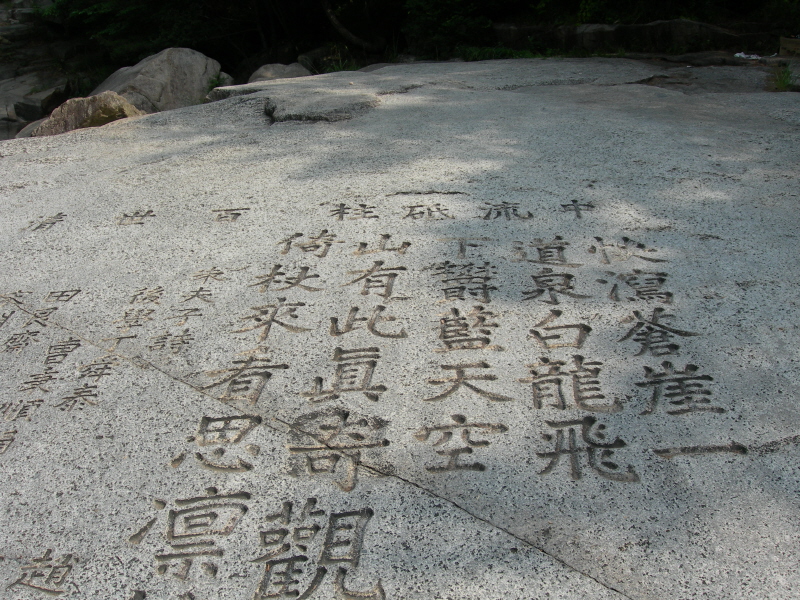 中流砥柱
百世清
快瀉蒼崖一
道泉白龍飛
下鬱藍天空
山有此眞奇觀
倚杖來看思凜
朱夫子詩
後學
趙